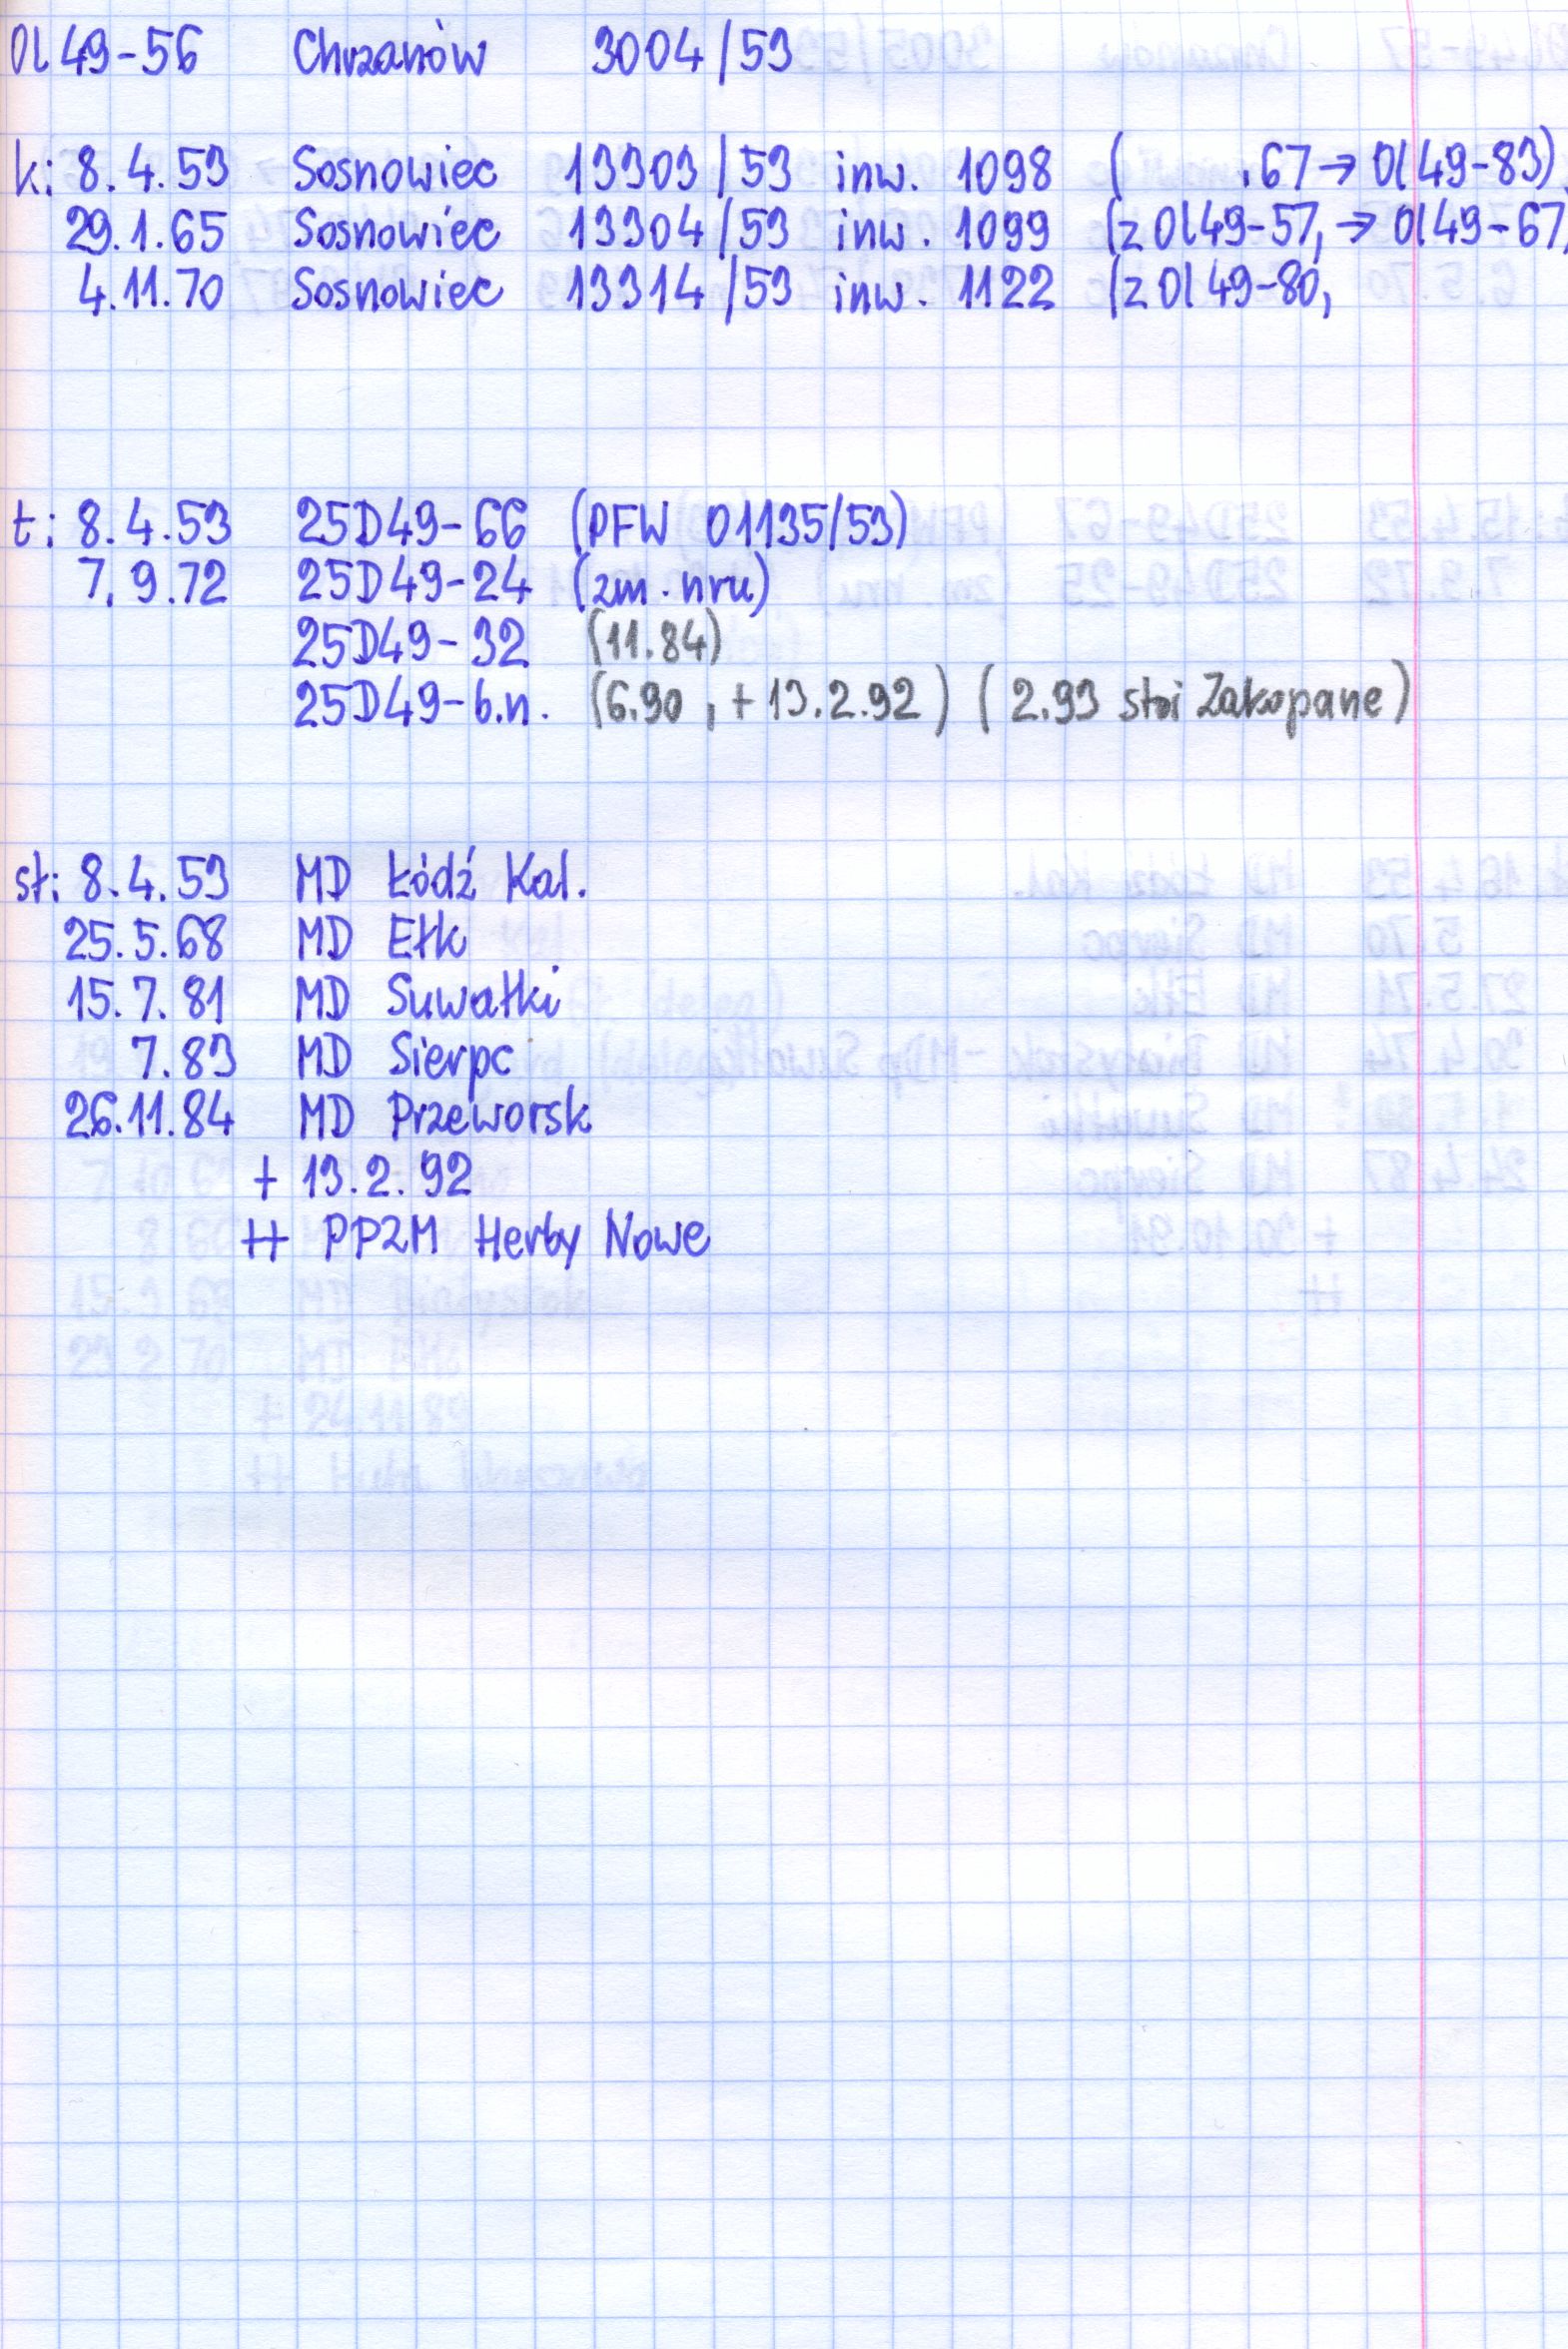 Ol 49-56 Chrzanów 3004/53
k: 8.4.53 Sosnowiec 13303/53 inw. 1098 ( .67 → Ol 49-83)
29.1.65 Sosnowiec 13304/53 inw. 1099 (z Ol 49-57, → Ol 49-67)
4.11.70 Sosnowiec 13314/53 inw. 1122 (z Ol 49-80,
t: 8.4.53 25D49-66 (PFW 01135/53)
7.9.72 25D49-24 (zm. nru)
25D49-32 (11.84)
25D49-b.n. (6.90, + 13.2.92) (2.93 stoi Zakopane)
st: 8.4.53 MD Łódź Kal.
25.5.68 MD Ełk
15.7.81 MD Suwałki
7.83 MD Sierpc
26.11.84 MD Przeworsk
+ 13.2.92
++ PPZM Herby Nowe